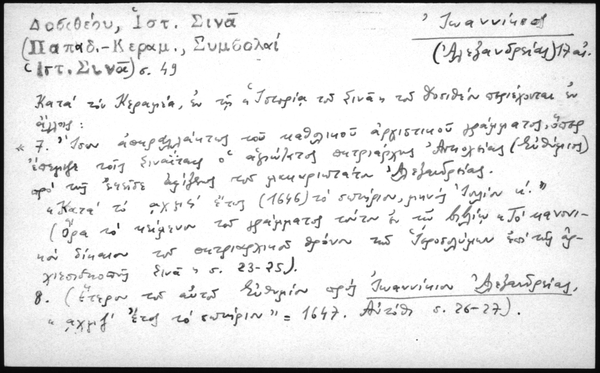 Δοσιθέου, Ἱστ. Σινᾶ
(Παπαδ.-Κεραμ., Συμβολαί
Ἱστ. Σινᾶ) σ. 49
Ἰωαννίκιος
(Ἀλεξανδρείας) 17 αἰ.
Κατὰ τὸν Κεραμέα, ἐν τῇ "Ἱστορίᾳ τοῦ Σινᾶ" τοῦ Δοσιθέου περιέχονται ἐν
ἄλλοις:
7. Ἴσον ἀπαραλλάκτως τοῦ καθολικοῦ ἀρχιερατικοῦ γράμματος, ὅπερ
ἔστειλε τοῖς Σιναΐταις ὁ ἁγιώτατος πατριάρχης Ἀντιοχείας (Εὐθύμιος)
πρὸ τῆς ἐκεῖσε ἀφίξεως τοῦ μακαριωτάτου Ἀλεξανδρείας.
"Κατὰ τὸ ͵αχμϛʹ ἔτος (1646) τὸ σωτήριον, μηνὸς Ἰουλίου κʹ."
(Ὅρα τὸ κείμενον τοῦ γράμματος τούτου ἐν τῷ βιβλίῳ "Τὸ κανονι-
κὸν δίκαιον τοῦ πατριαρχικοῦ θρόνου τῶν Ἱεροσολύμων ἐπὶ τῆς ἀρ-
χιεπισκοπῆς Σινᾶ" σ. 23-25).
8. (Ἕτερον τοῦ αὐτοῦ Εὐθυμίου πρὸς Ἰωαννίκιον Ἀλεξανδρείας,
"͵αχμζʹ ἔτος τὸ σωτήριον" = 1647. Αὐτόθι σ. 26-27).